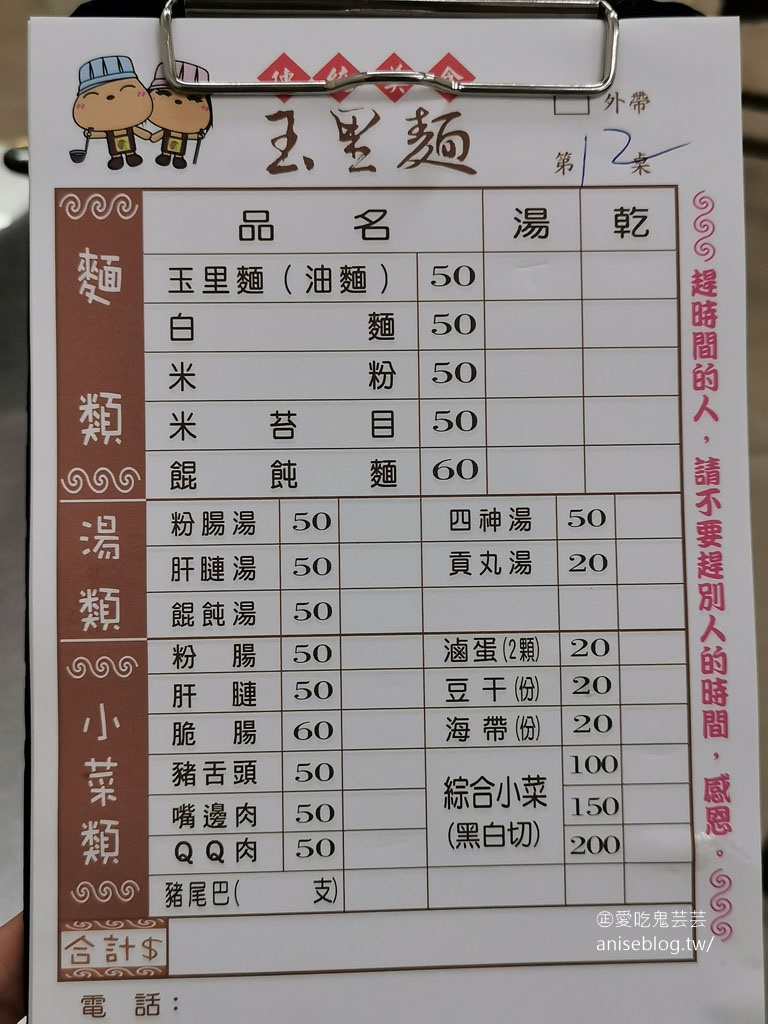 傳統美食
玉里麵
外帶
第12桌
麵類
品名 湯 乾
玉里麵(油麵) 50
白麵 50
米粉 50
米苔目 50
餛飩麵 60
湯類
粉腸湯 50 四神湯 50
肝腱湯 50 貢丸湯 20
餛飩湯 50
小菜類
粉腸 50 滷蛋(2顆) 20
肝腱 50 豆干(份) 20
脆腸 60 海帶(份) 20
豬舌頭 50 綜合小菜(黑白切) 100
嘴邊肉 50 150
QQ肉 50 200
豬尾巴( 支)
合計$
電話：
趕時間的人，請不要趕別人的時間，感恩。
㊣愛吃鬼芸芸
aniseblog.tw/